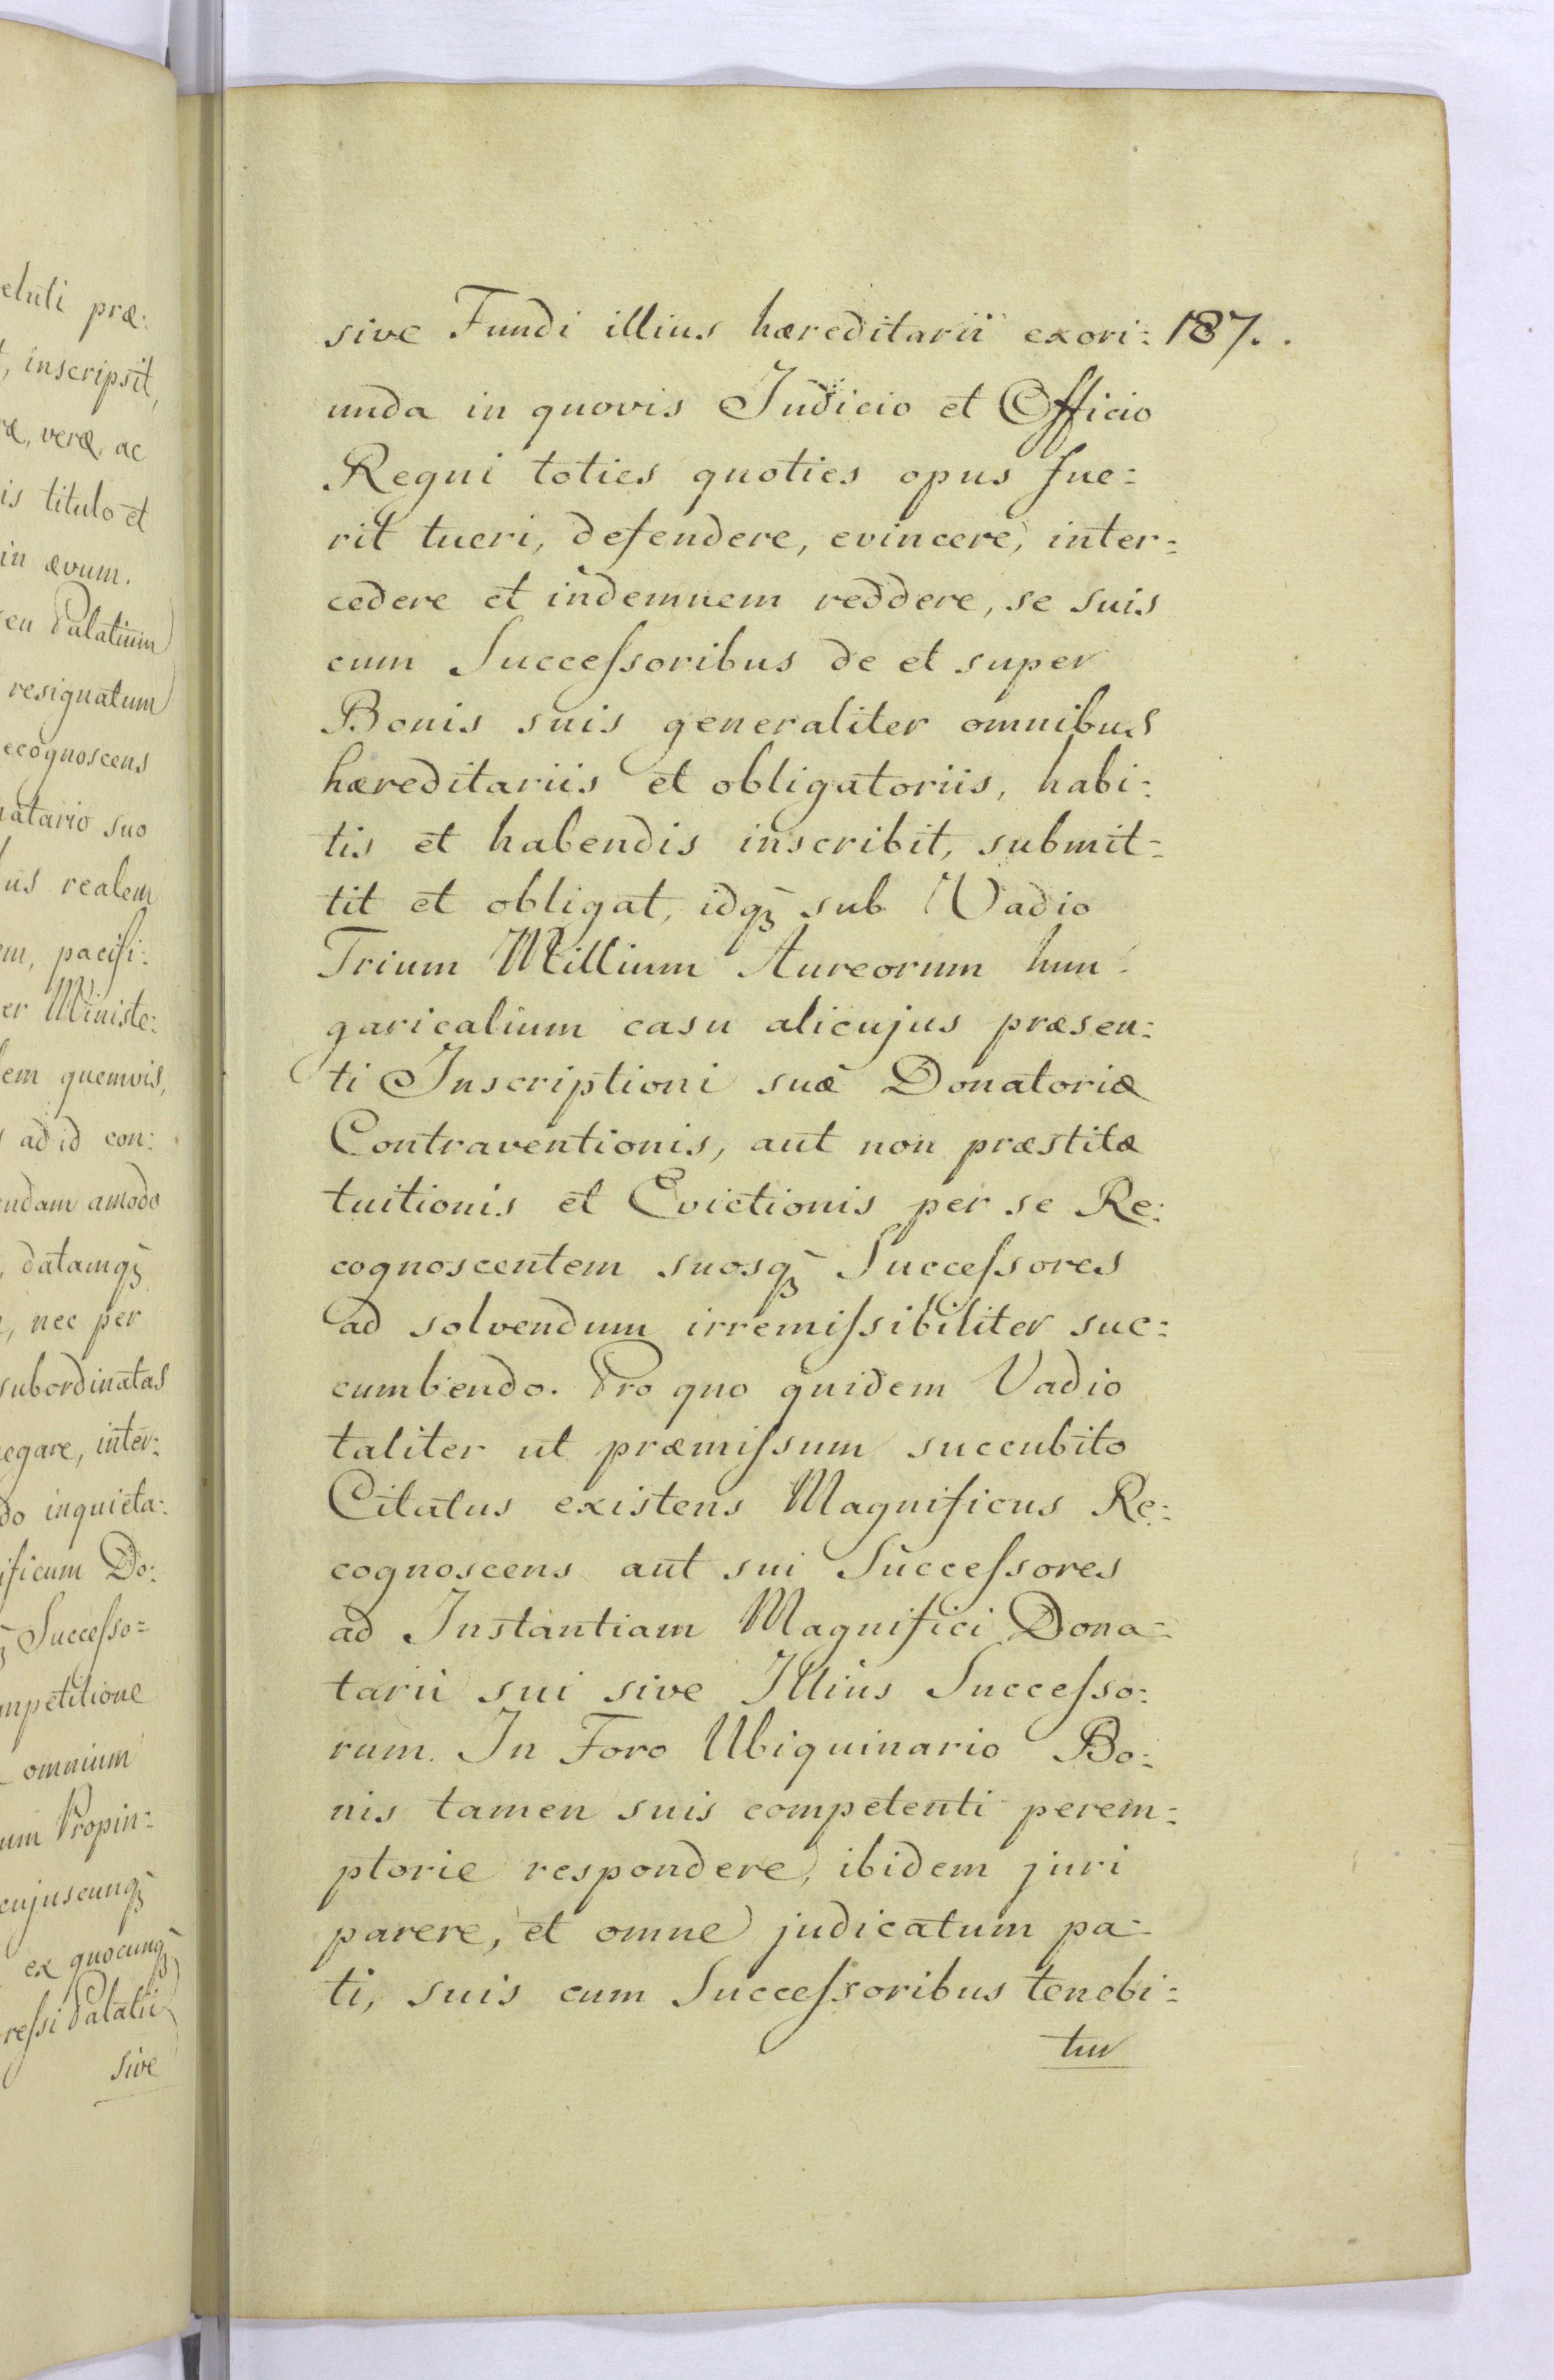 eluti præ:
, inscripsit,
ræ, veræ, ac
is titulo et
in ævum.
seu Palatium
resignatum
ecognoscens
natario suo
us realem
em, pacifi:
er Ministe:
lem quemvis,
ad id con:
endam amodo
, datamqȝ
, nec per
subordinatas
egare, inter:
do inquieta:
ificum Do:
ȝ Successo=
mpetitione
omnium
um Propin=
cujuscunqȝ
ex quocunqȝ
ressi Palatii
sive
sive Fundi illius hæreditarii exori= 187.
unda in quovis Judicio et Officio
Regni toties quoties opus fue=
rit tueri, defendere, evincere, inter=
cedere et indemnem reddere, se suis
cum Successoribus de et super
Bonis suis generaliter omnibus
hæreditariis et obligatoriis, habi=
tis et habendis inscribit, submit=
tit et obligat, idqȝ sub Vadio
Trium Millium Aureorum hun=
garicalium casu alicujus præsen=
ti Inscriptioni suæ Donatoriæ
Contraventionis, aut non præstitæ
tuitionis et Evictionis per se Re=
cognoscentem suosqȝ Successores
ad solvendum irremissibiliter suc=
cumbendo. Pro quo quidem Vadio
taliter ut præmissum succubito
Citatus existens Magnificus Re=
cognoscens aut sui Successores
ad Instantiam Magnifici Dona=
tarii sui sive Illius Successo=
rum. In Foro Ubiquinario Bo=
nis tamen suis competenti perem=
ptorie respondere, ibidem juri
parere, et omne judicatum pa=
ti, suis cum Successoribus tenebi=
tur